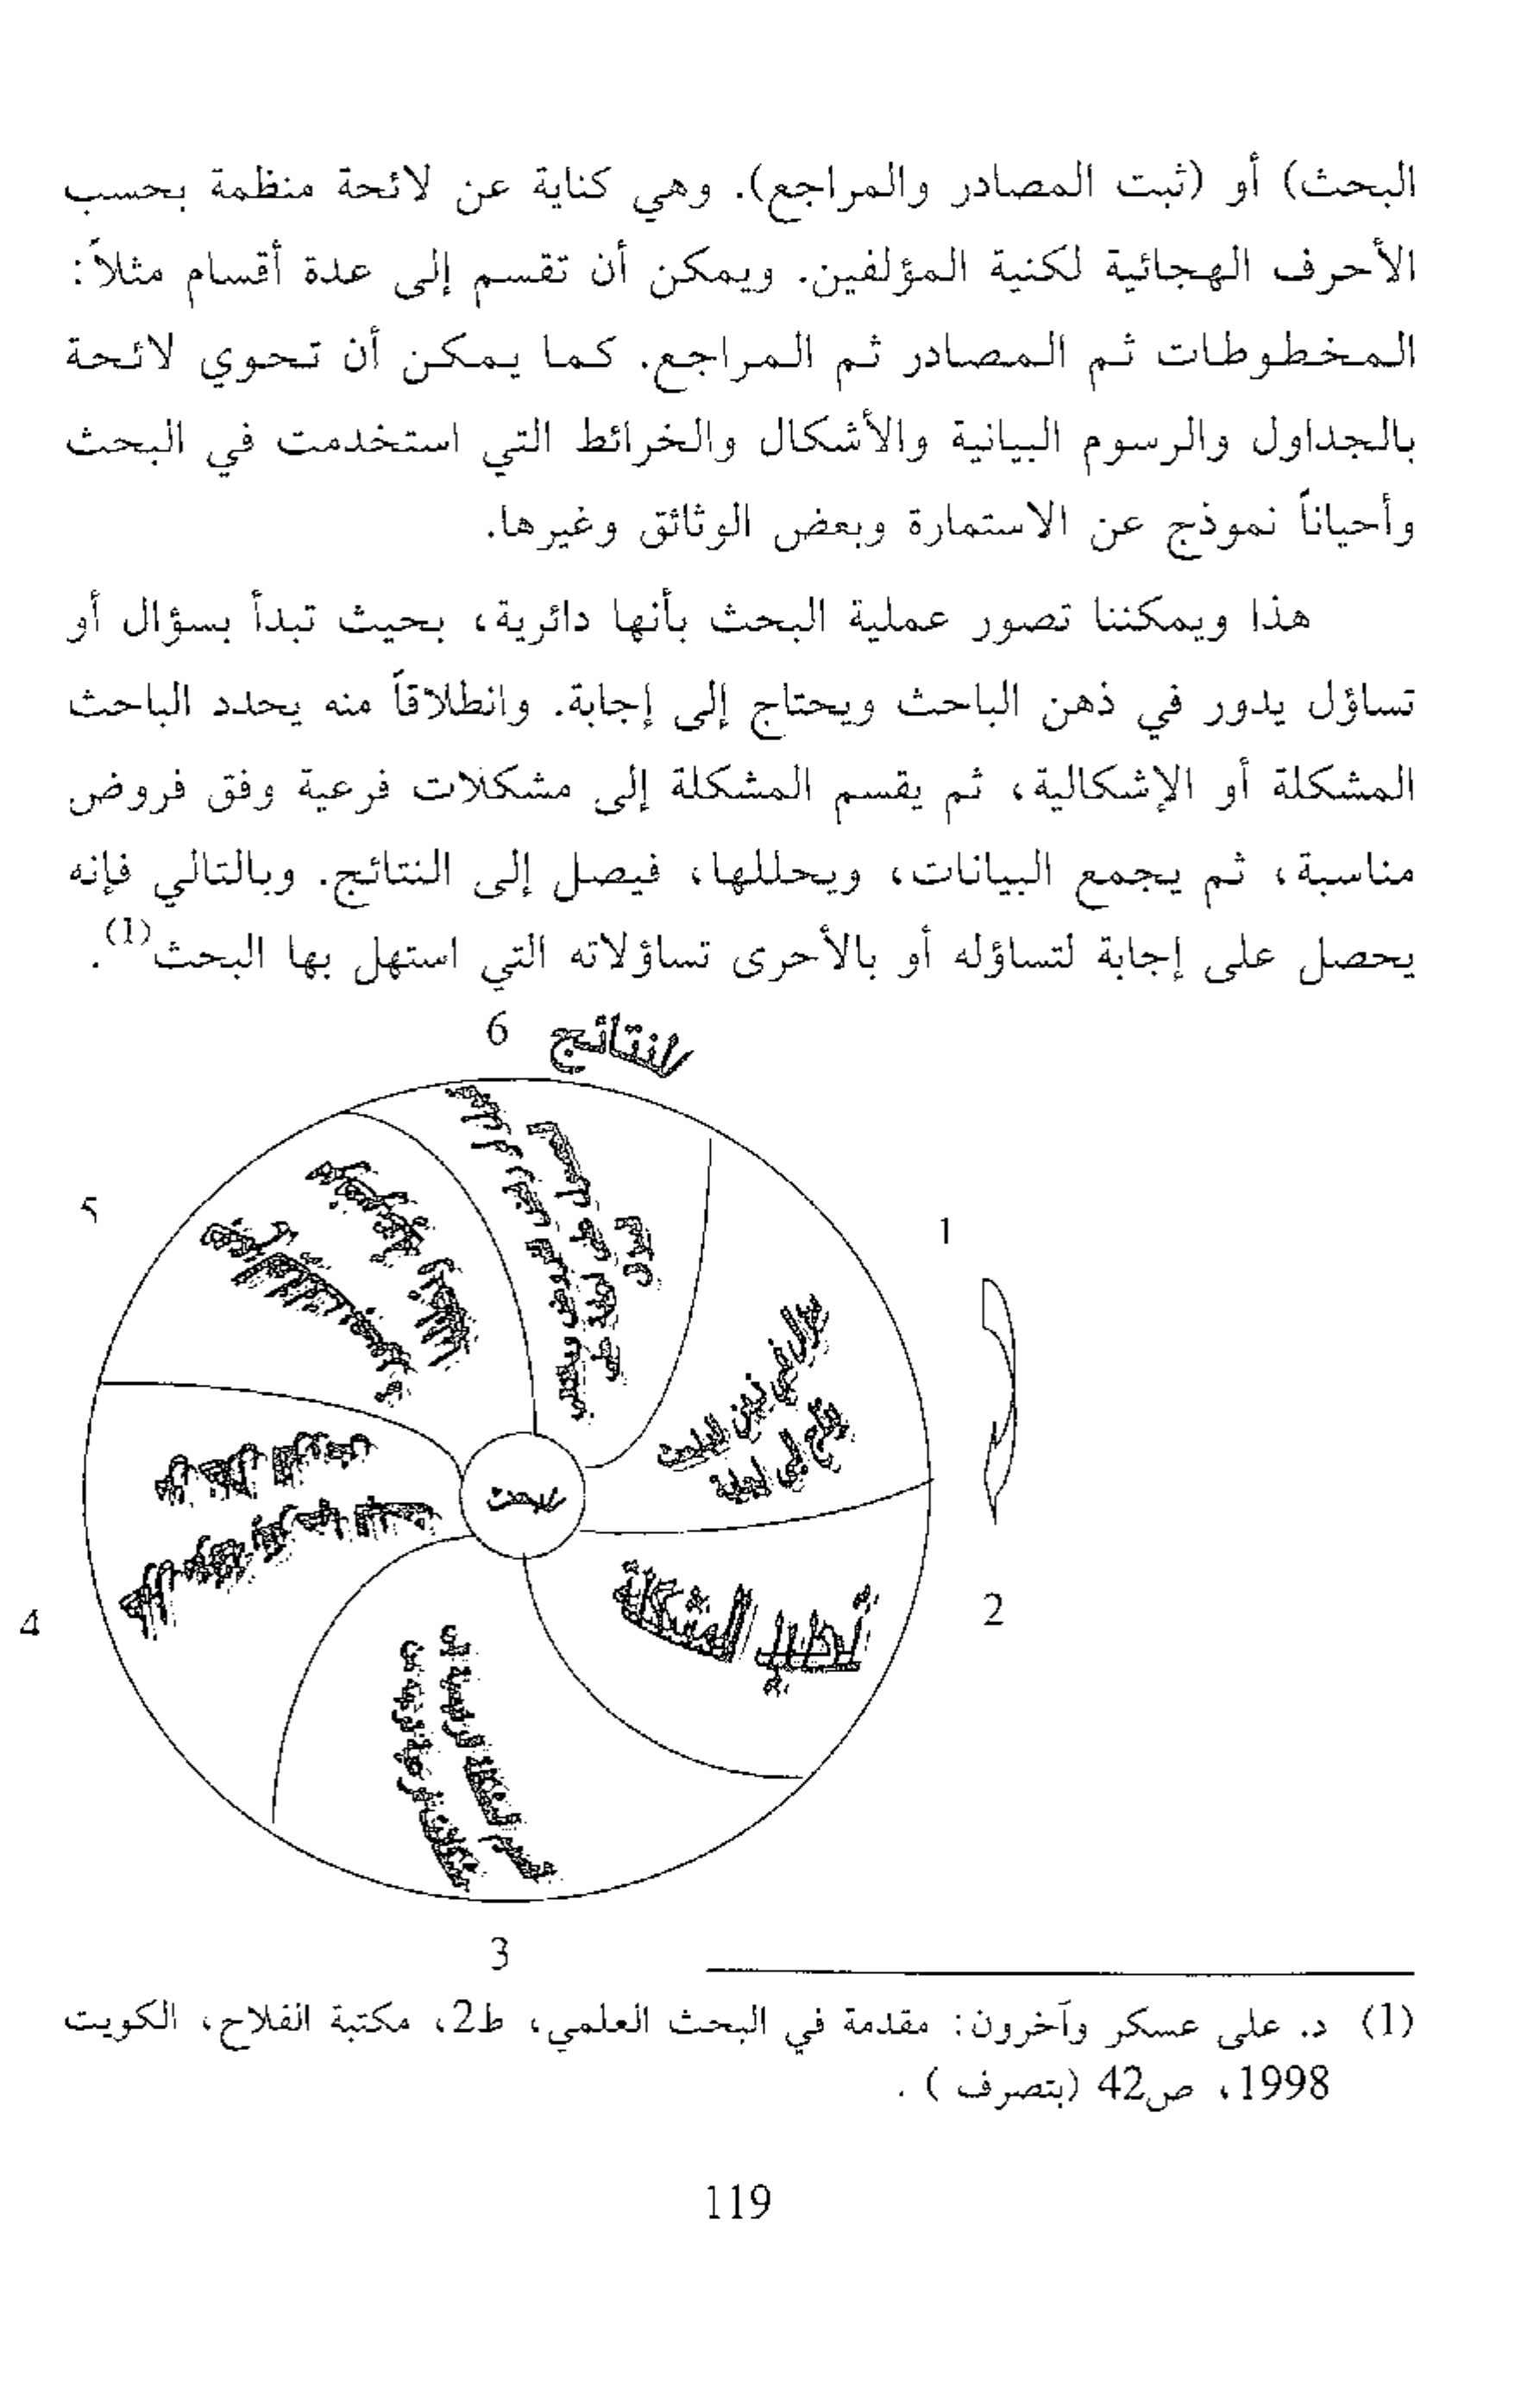 البحث) أو (ثبت المصادر والمراجع). وهي كناية عن لائحة منظمة بحسب
الأحرف الهجائية لكنية المؤلفين. ويمكن أن تقسم إلى عدة أقسام مثلاً:
المخطوطات ثم المصادر ثم المراجع. كما يمكن أن تحوي لائحة
بالجداول والرسوم البيانية والأشكال والخرائط التي استخدمت في البحث
وأحياناً نموذج عن الاستمارة وبعض الوثائق وغيرها.
هذا ويمكننا تصور عملية البحث بأنها دائرية، بحيث تبدأ بسؤال أو
تساؤل يدور في ذهن الباحث ويحتاج إلى إجابة. وانطلاقاً منه يحدد الباحث
المشكلة أو الإشكالية، ثم يقسم المشكلة إلى مشكلات فرعية وفق فروض
مناسبة، ثم يجمع البيانات، ويحللها، فيصل إلى النتائج. وبالتالي فإنه
يحصل على إجابة لتساؤله أو بالأحرى تساؤلاته التي استهل بها البحث(1).
6 النتائج
5
1
سؤال في ذهن الباحث
يحتاج إلى إجابة
البحث
المشكلة
2
4
3
(1) د. على عسكر وآخرون: مقدمة في البحث العلمي، ط2، مكتبة الفلاح، الكويت
1998، ص42 (بتصرف ) .
119